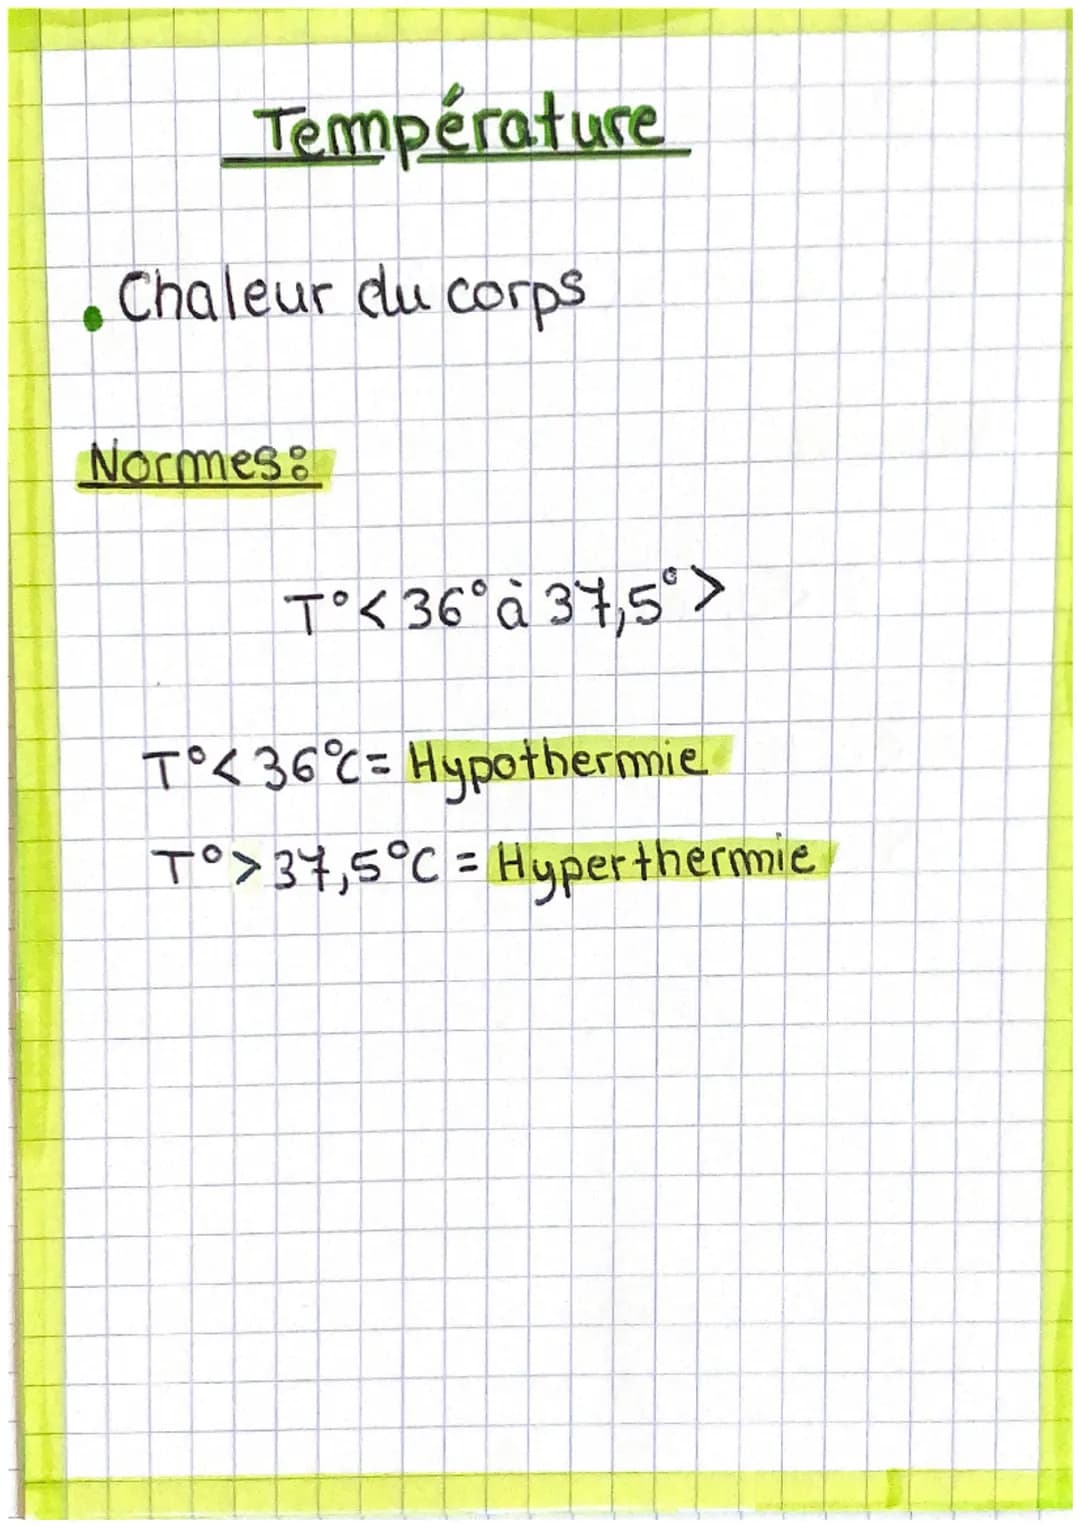 Température
. Chaleur du corps
Normes:
T°< 36° à 37,5° >
T°< 36°C = Hypothermie
T°> 37,5°C = Hyperthermie